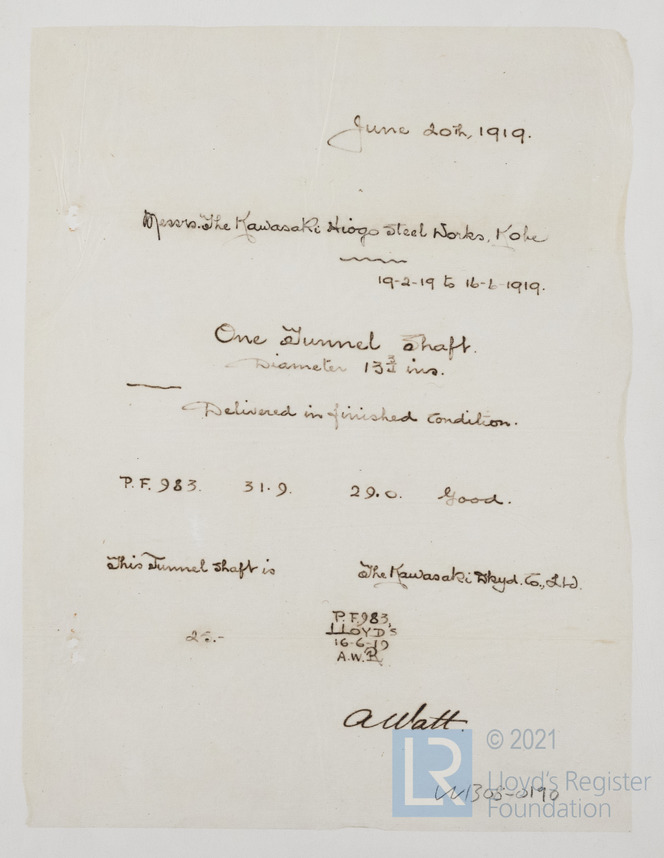 June 20th, 1919.
Messrs. The Kawasaki Hiogo Steel Works, Kobe
19-2-19 to 16-6-1919.
One Tunnel Shaft.
Diameter 13¾ ins.
Delivered in finished condition.
P.F. 983. 31.9. 29.0. Good.
This Tunnel Shaft is The Kawasaki Dkyd. Co., Ltd.
P.F.983.
LLOYD'S
16-6-19
A.W.
A Watt.
LR © 2021
Lloyd's Register
Foundation
W1305-0190